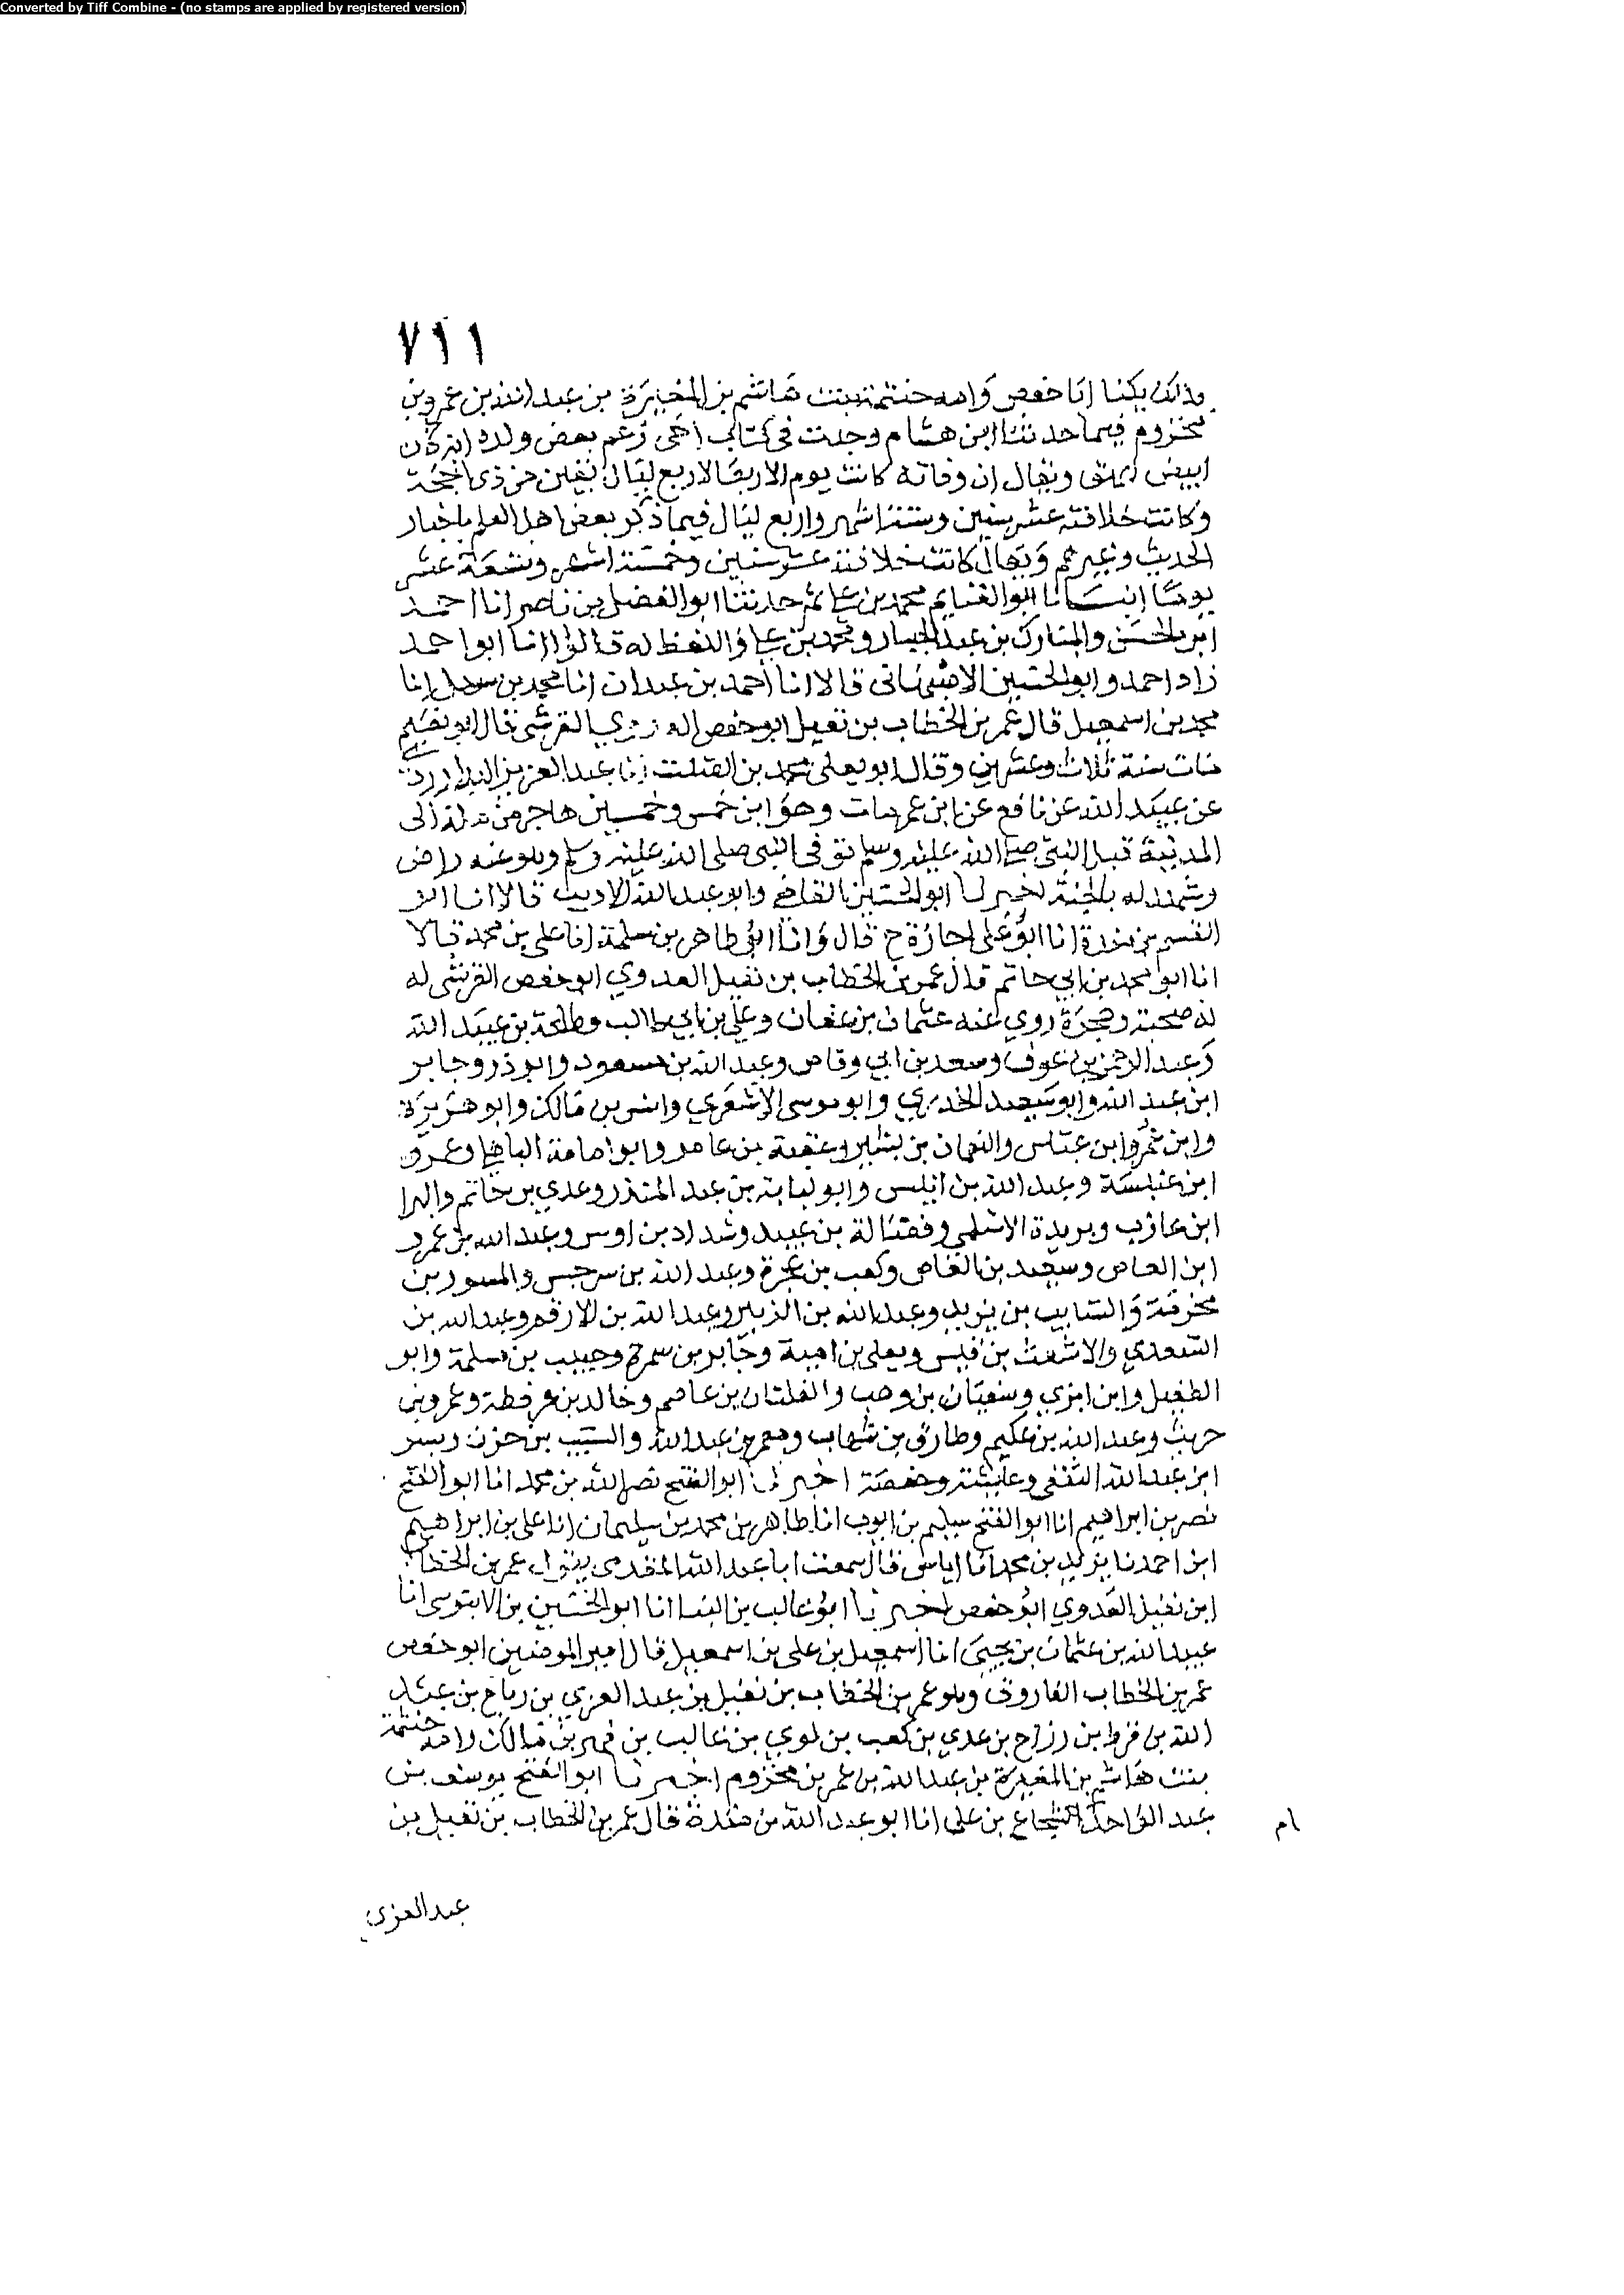 Converted by Tiff Combine - (no stamps are applied by registered version)
٧١١
وذلك يكنا ابا حفص وامه حنتمة بنت هاشم بن المغيرة بن عبد الله بن عمرو بن
مخزوم فيما حدثنا ابن هشام وجدت في كتاب اخي زعم بعض ولده انه كان
ابيض امهق ويقال ان وفاته كانت يوم الاربعا لاربع ليال بقين من ذي الحجة
وكانت خلافته عشر سنين وستة اشهر واربع ليال فيما ذكر بعض اهل العلم باخبار
الحديث وغيرهم ويقال كانت خلافته عشر سنين وخمسة اشهر وتسعة عشر
يوما انبانا ابو الغنايم محمد بن علي ثم حدثنا ابو الفضل بن ناصر انا احمد
ابن الحسن والمبارك بن عبد الجبار ومحمد بن علي واللفظ له قالوا انا ابو احمد
زاد احمد وابو الحسين الاصبهاني قالا انا احمد بن عبدان انا محمد بن سهل انا
محمد بن اسمعيل قال عمر بن الخطاب بن نفيل ابو حفص العدوي القرشي قال ابو نعيم
مات سنة ثلاث وعشرين وقال ابو يعلى محمد بن الصلت نا عبد العزيز الدراوردي
عن عبيد الله عن نافع عن ابن عمر مات وهو ابن خمس وخمسين هاجر من مكة الى
المدينة قبل النبي صلى الله عليه وسلم توفي النبي صلى الله عليه وسلم وهو عنه راض
وشهد له بالجنة اخبرنا ابو الحسين القاضي وابو عبد الله الاديب قالا انا ابو
القسم بن مندة انا ابو علي اجازة ح قال وانا ابو طاهر بن سلمة انا علي بن محمد قالا
انا ابو محمد بن ابي حاتم قال عمر بن الخطاب بن نفيل العدوي ابو حفص القرشي له
له صحبة وهجرة روي عنه عثمان بن عفان وعلي بن ابي طالب وطلحة بن عبيد الله
وعبد الرحمن بن عوف وسعد بن ابي وقاص وعبد الله بن مسعود وابو ذر وجابر
ابن عبد الله وابو سعيد الخدري وابو موسى الاشعري وانس بن مالك وابو هريرة
وابن عمر وابن عباس والنعمان بن بشير وعقبة بن عامر وابو امامة الباهلي وعمرو
ابن عنبسة وعبد الله بن انيس وابو لبابة بن عبد المنذر وعدي بن حاتم والبرا
ابن عازب وبريدة الاسلمي وفضالة بن عبيد وشداد بن اوس وعبد الله بن عمرو
ابن العاص وسعيد بن العاص وكعب بن عجرة وعبد الله بن سرجس والمسور بن
مخرمة والسايب بن يزيد وعبد الله بن الزبير وعبد الله بن الارقم وعبد الله بن
السعدي والاشعث بن قيس ويعلى بن امية وجابر بن سمرة وحبيب بن مسلمة وابو
الطفيل وابن ابزي وسفيان بن وهب والفلتان بن عاصم وخالد بن عرفطة وعمرو بن
حريث وعبد الله بن عكيم وطارق بن شهاب ومعمر بن عبد الله والمسيب بن حزن وبسر
ابن عبد الله الثقفي وعايشة وحفصة اخبرنا ابو الفتح نصر الله بن محمد انا ابو الفتح
نصر بن ابراهيم انا ابو الفتح سليم بن ايوب انا طاهر بن محمد بن سليمان انا علي بن ابراهيم
ابن احمد نا يزيد بن محمد بن اياس قال سمعت ابا عبد الله المقدمي يقول عمر بن الخطاب
ابن نفيل العدوي ابو حفص اخبرنا ابو غالب بن البنا انا ابو الحسين بن الابنوسي انا
عبيد الله بن عثمان بن يحيى انا اسمعيل بن علي بن اسمعيل قال امير المومنين ابو حفص
عمر بن الخطاب الفاروق وهو عمر بن الخطاب بن نفيل بن عبد العزي بن رياح بن عبد
الله بن قرط بن رزاح بن عدي بن كعب بن لوي بن غالب بن فهر بن مالك وامه حنتمة
بنت هاشم بن المغيرة بن عبد الله بن عمر بن مخزوم اخبرنا ابو الفتح يوسف بن
عبد الواحد انا شجاع بن علي انا ابو عبد الله بن مندة قال عمر بن الخطاب بن نفيل بن
عبد العزي